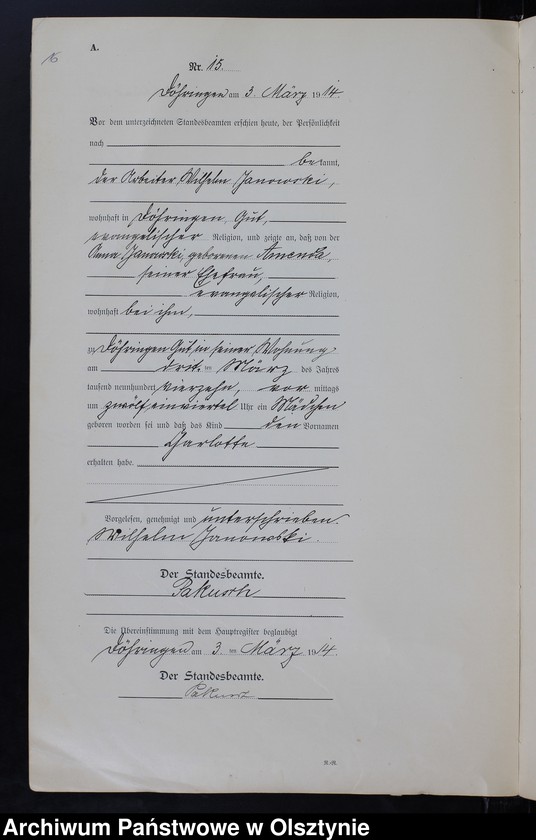 16
A.
Nr. 15.
Döhringen am 3. März 1914.
Vor dem unterzeichneten Standesbeamten erschien heute, der Persönlichkeit
nach
bekannt,
der Arbeiter Wilhelm Janowski,
wohnhaft in Döhringen Gut,
evangelischer Religion, und zeigte an, daß von der
Anna Janowski, geborenen Amenda,
seiner Ehefrau,
evangelischer Religion,
wohnhaft bei ihm,
zu Döhringen Gut in seiner Wohnung
am März des Jahres
tausend neunhundert vierzehn, vormittags
um zwölf einviertel Uhr ein Mädchen
geboren worden sei und daß das Kind den Vornamen
Charlotte
erhalten habe.
Vorgelesen, genehmigt und unterschrieben.
Wilhelm Janowski.
Der Standesbeamte.
Die Übereinstimmung mit dem Hauptregister beglaubigt
Döhringen am 3. März 1914.
Der Standesbeamte.
Archiwum Państwowe w Olsztynie